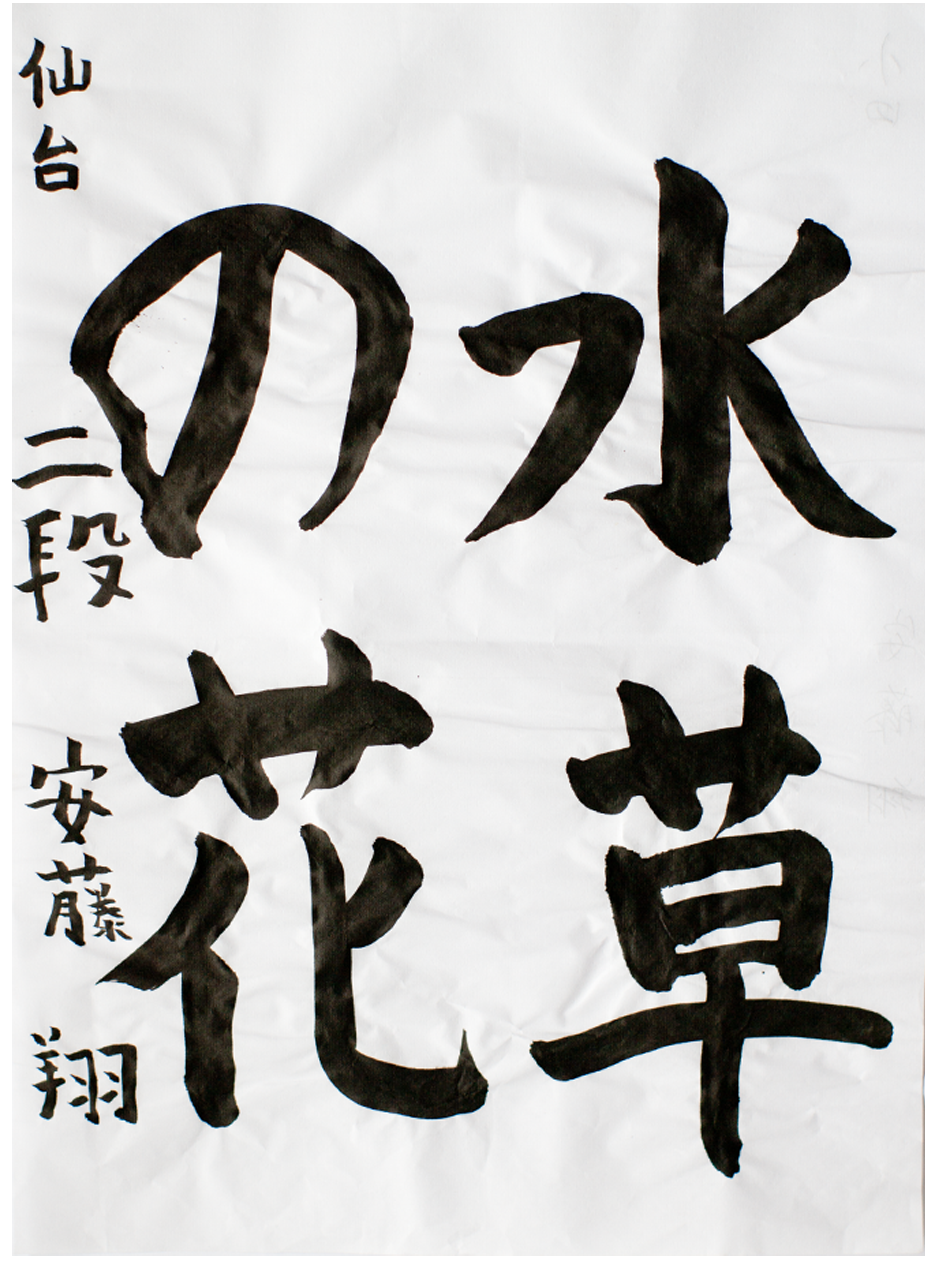 水草
の花
仙台 二段 安藤 翔